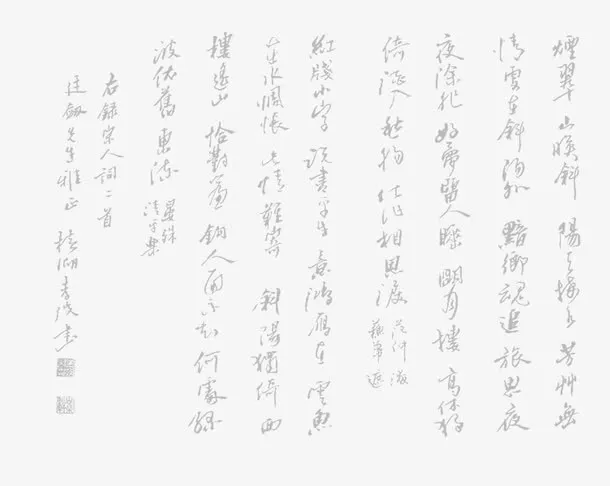 煙翠山暎斜陽天接水芳艸無
情更在斜陽外黯鄉魂追旅思夜
夜除非好夢留人睡明月樓高休獨
倚酒入愁腸化作相思淚
范仲淹
蘇幕遮
紅牋小字說盡平生意鴻雁在雲魚
在水惆悵此情難寄斜陽獨倚西
樓遙山恰對簾鉤人面不知何處綠
波依舊東流
晏殊
清平樂
右錄宋人詞二首
先生雅正
書